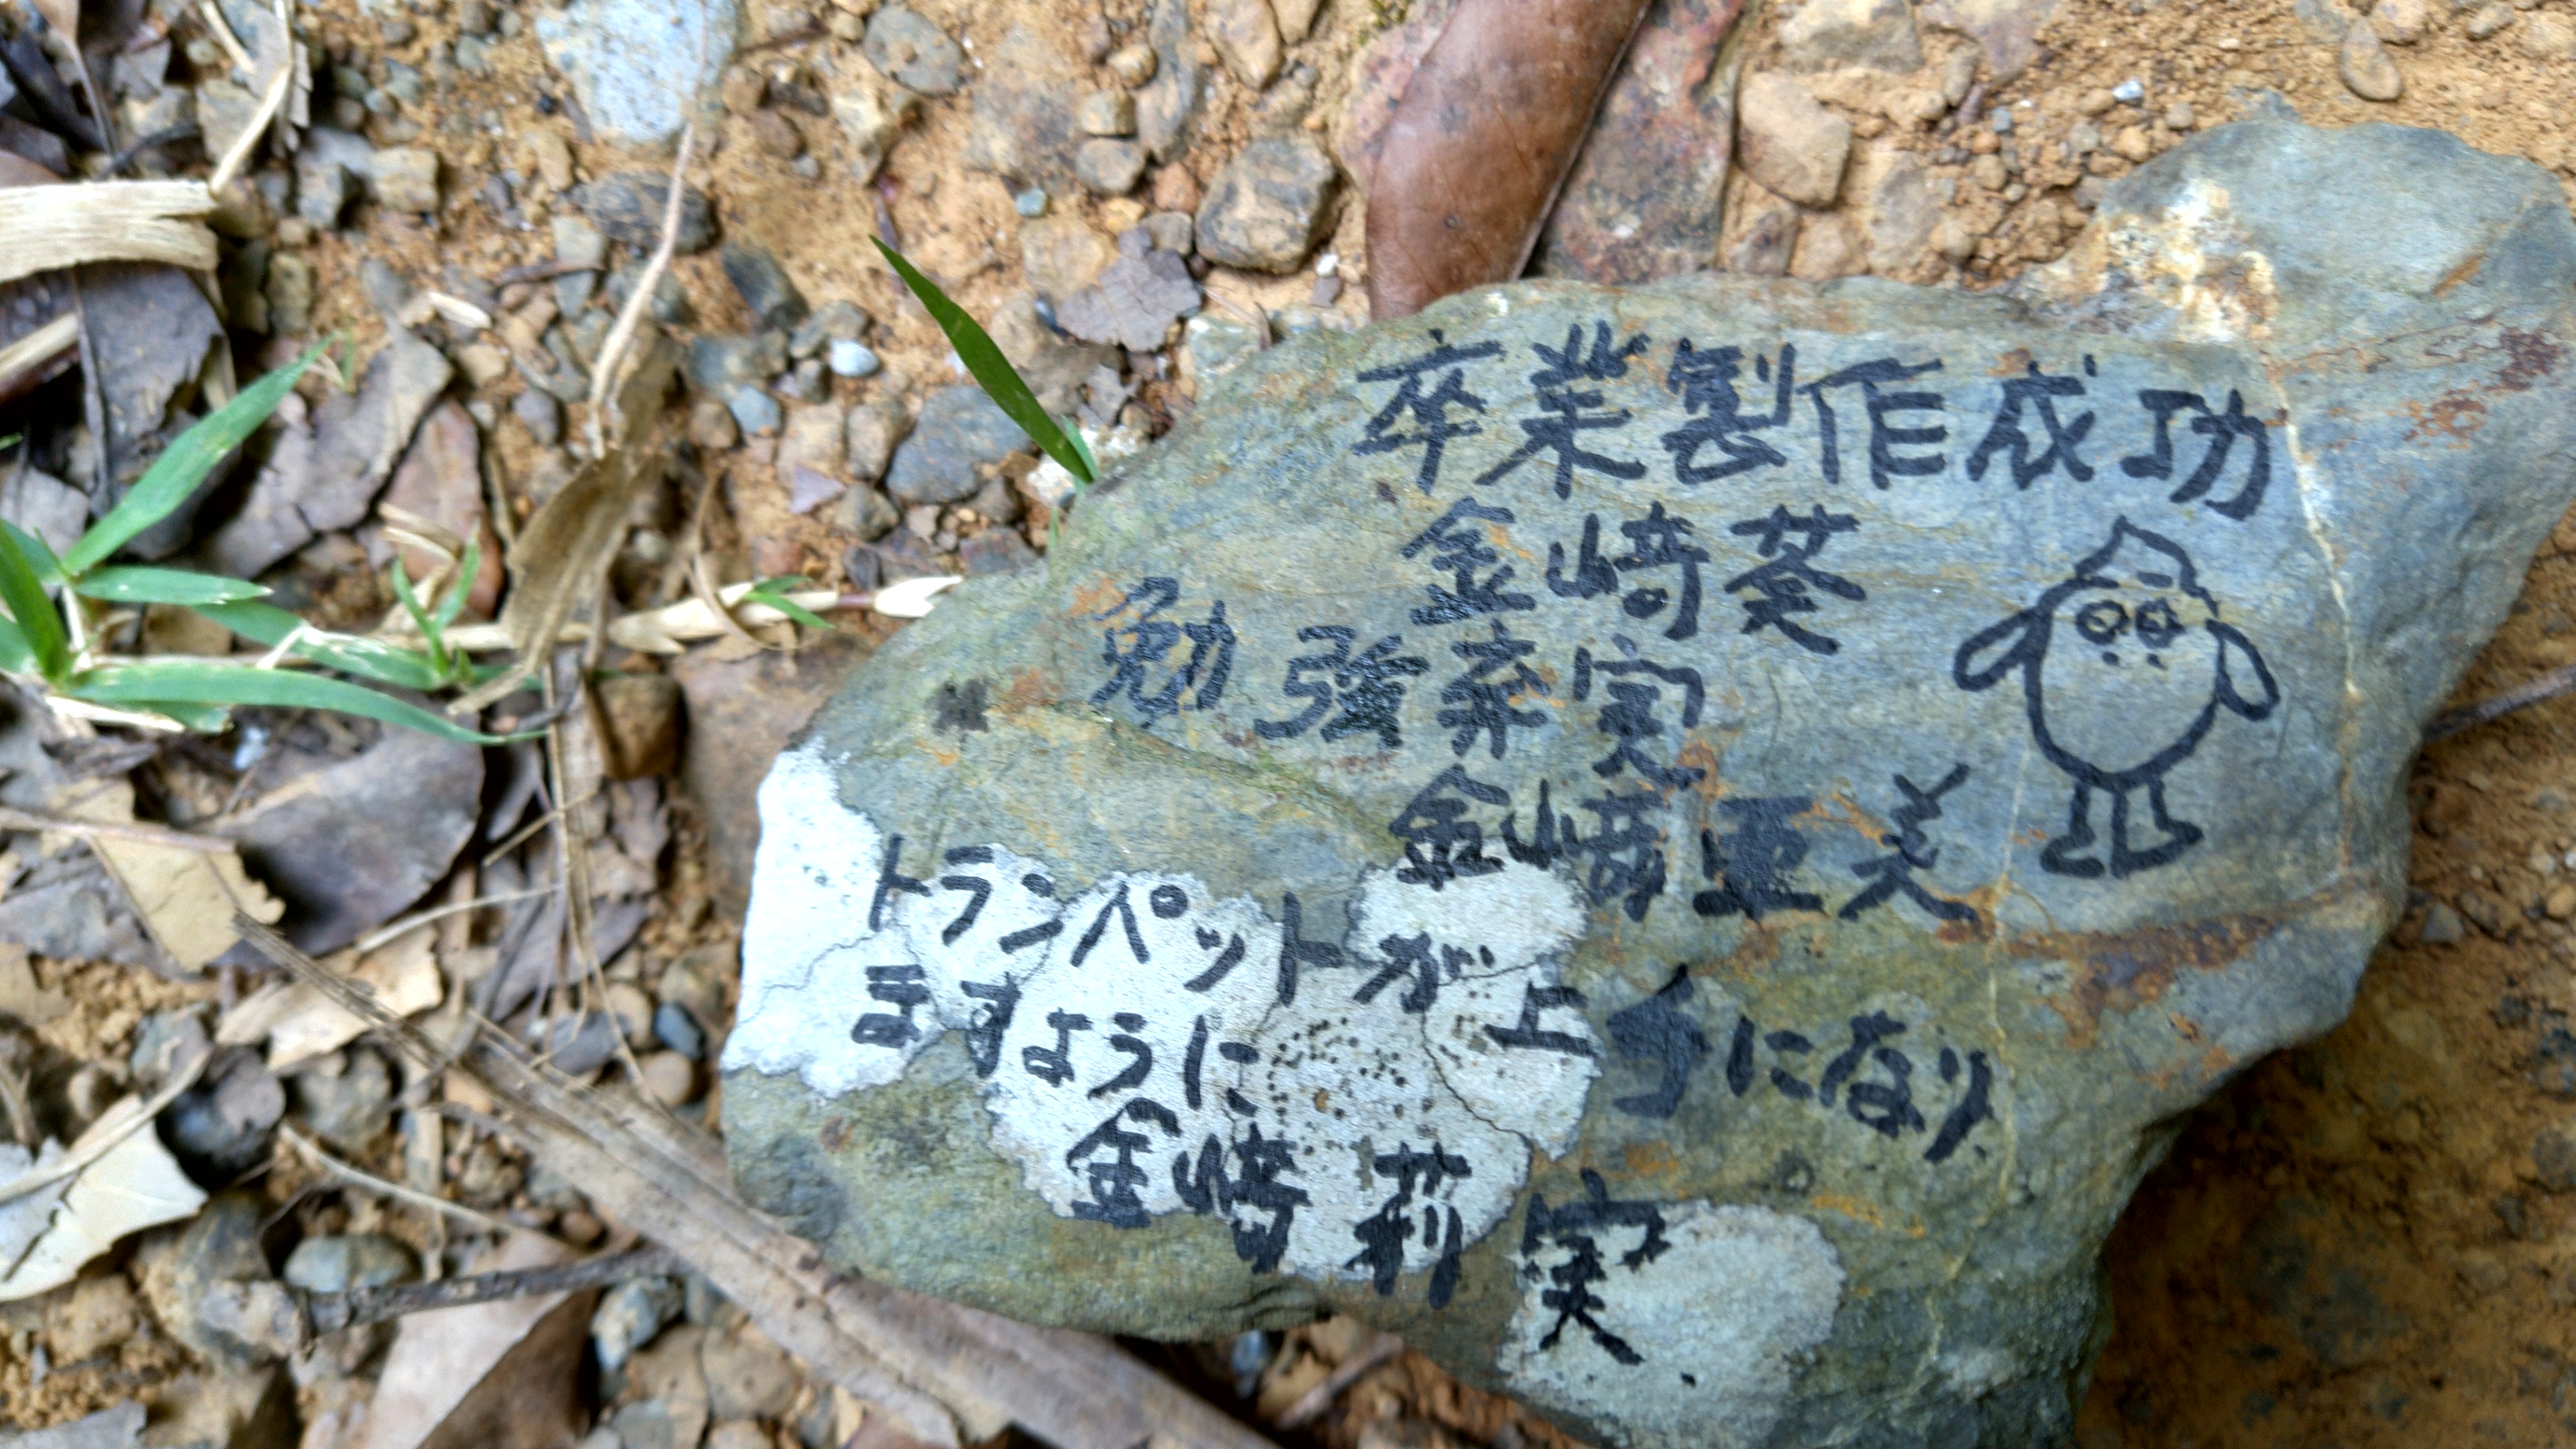 卒業製作成功
金崎葵
勉強充実
金崎亜美
トランペットが上手になり
ますように
金崎莉実